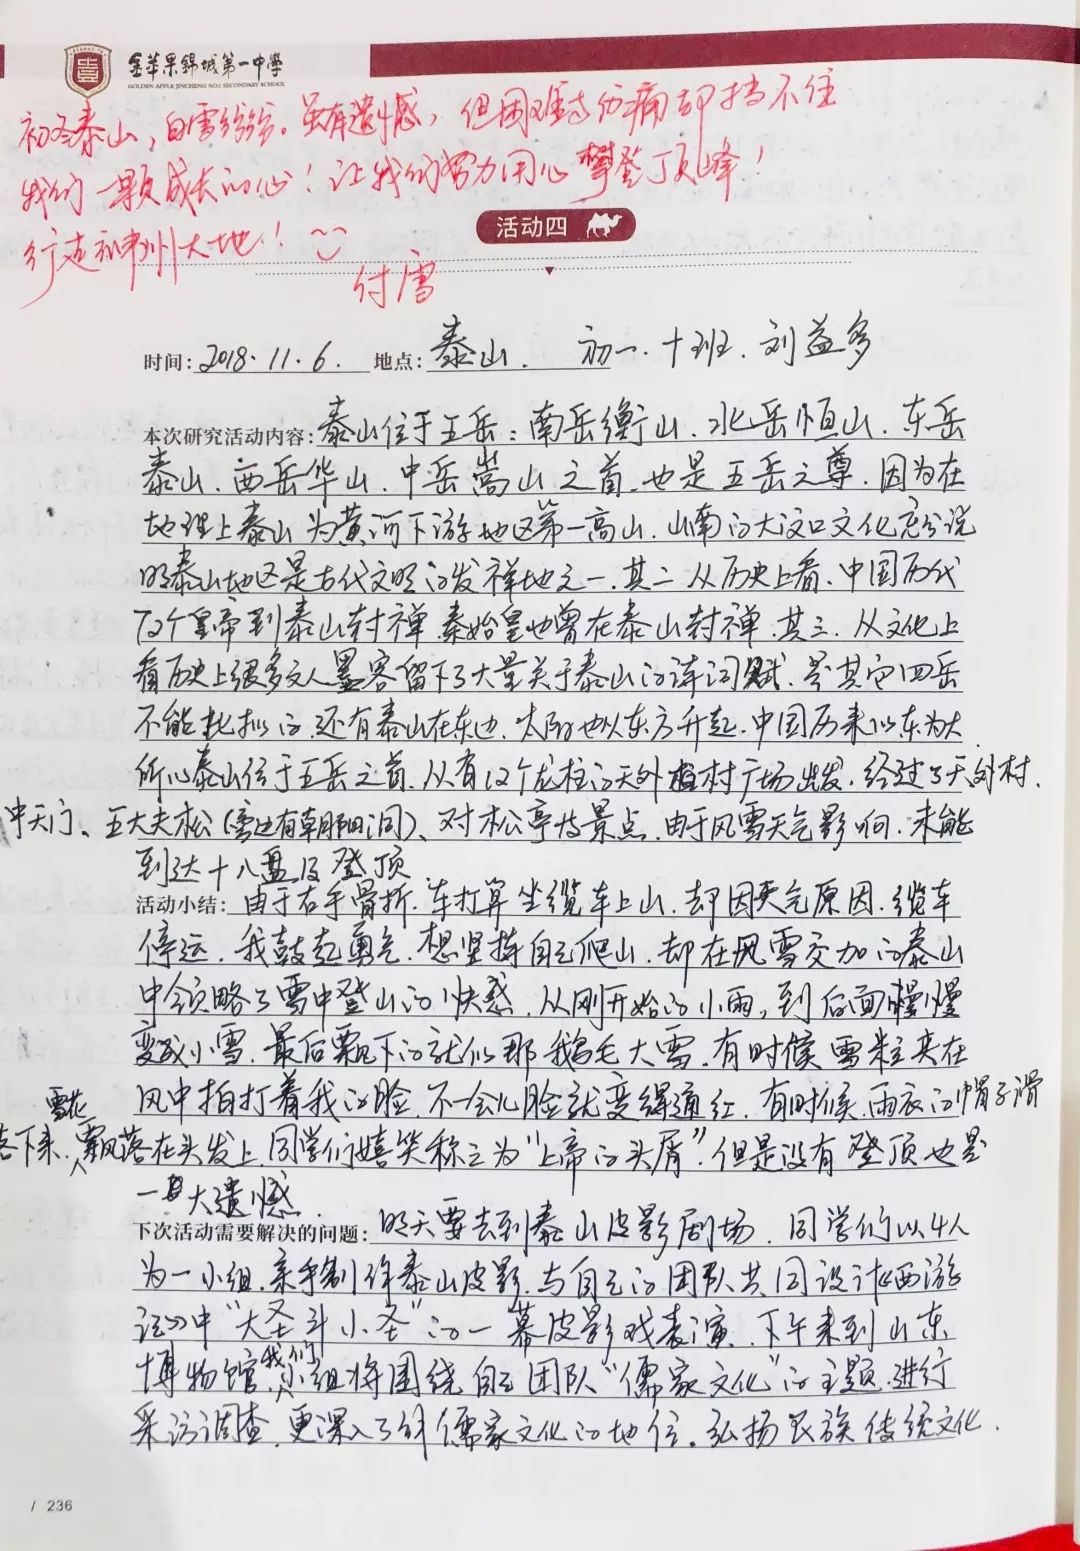 金苹果錦城第一中學
GOLDEN APPLE JINCHENG NO.1 SECONDARY SCHOOL
初冬泰山，白雪纷纷。虽有遗憾，但困难与伤痛却挡不住
我们一颗成长的心！让我们努力用心攀登顶峰！
行走神州大地！
付雪
活动四
时间：2018.11.6. 地点：泰山. 初一.十班.刘益多
本次研究活动内容：泰山位于五岳：南岳衡山.北岳恒山.东岳
泰山.西岳华山.中岳嵩山之首.也是五岳之尊.因为在
地理上泰山为黄河下游地区第一高山.山南的大汶口文化充分说
明泰山地区是古代文明的发祥地之一.其二从历史上看.中国历代
72个皇帝到泰山封禅.秦始皇也曾在泰山封禅.其三.从文化上
看历史上很多文人墨客留下了大量关于泰山的诗词赋.是其它四岳
不能比拟的.还有泰山在东边.太阳也从东方升起.中国历来以东为大.
所以泰山位于五岳之首.从有12个龙柱的天外村广场出发.经过了天外村.
中天门、五大夫松(旁边有朝阳洞)、对松亭等景点.由于风雪天气影响.未能
到达十八盘及登顶
活动小结：由于右手骨折.本打算坐缆车上山.却因天气原因.缆车
停运.我鼓起勇气.想坚持自己爬山.却在风雪交加的泰山
中领略了雪中登山的快感.从刚开始的小雨，到后面慢慢
变成小雪.最后飘下的就似那鹅毛大雪.有时候雪粒夹在
风中拍打着我的脸.不一会儿脸就变得通红.有时候.雨衣的帽子滑
落下来.雪花飘落在头发上.同学们嬉笑称之为“上帝的头屑”.但是没有登顶也是
一大遗憾.
下次活动需要解决的问题：明天要去到泰山皮影剧场.同学们以4人
为一小组.亲手制作泰山皮影.与自己的团队共同设计《西游
记》中“大圣斗小圣”的一幕皮影戏表演.下午来到山东
博物馆我们小组将围绕自己团队“儒家文化”的主题.进行
采访调查.更深入了解儒家文化的地位。弘扬民族传统文化.
/ 236